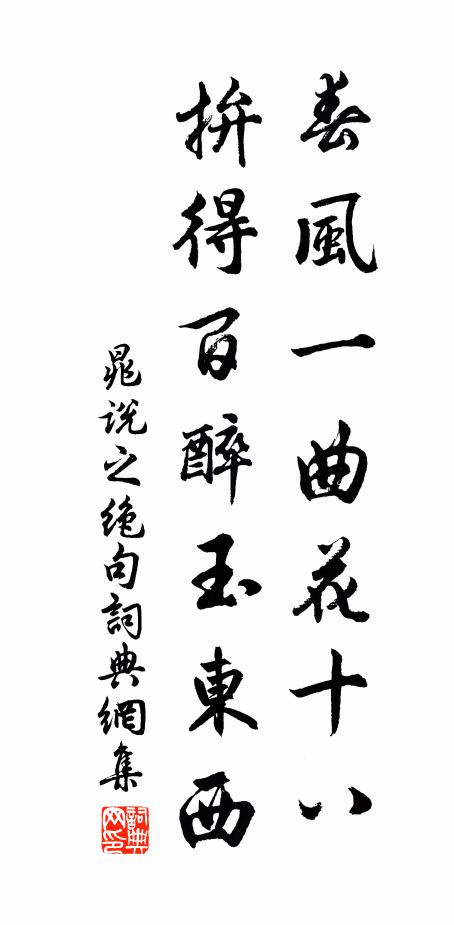 春風一曲花十八
拚得百醉玉東西
晁說之絶句詞典網集
詞典網印